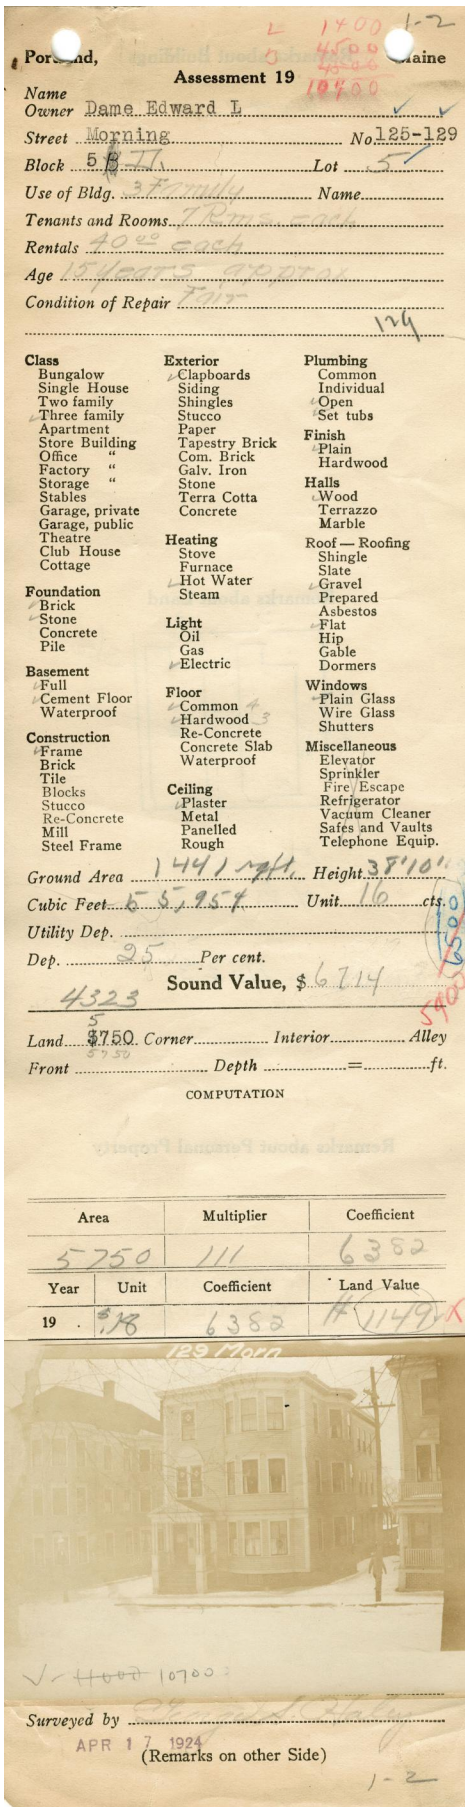 1-2
L 1400
4500
10400
Portland, Maine
Assessment 19
Name
Owner Dame Edward L
Street Morning No. 125-129
Block 5 Lot 5
Use of Bldg. 3 Family Name
Tenants and Rooms 7 Rms. each
Rentals 40 00 each
Age 15 years approx
Condition of Repair Fair
129
Class
Bungalow
Single House
Two family
Three family
Apartment
Store Building
Office "
Factory "
Storage "
Stables
Garage, private
Garage, public
Theatre
Club House
Cottage
Foundation
Brick
Stone
Concrete
Pile
Basement
Full
Cement Floor
Waterproof
Construction
Frame
Brick
Tile
Blocks
Stucco
Re-Concrete
Mill
Steel Frame
Exterior
Clapboards
Siding
Shingles
Stucco
Paper
Tapestry Brick
Com. Brick
Galv. Iron
Stone
Terra Cotta
Concrete
Heating
Stove
Furnace
Hot Water
Steam
Light
Oil
Gas
Electric
Floor
Common 4
Hardwood 3
Re-Concrete
Concrete Slab
Waterproof
Ceiling
Plaster
Metal
Panelled
Rough
Plumbing
Common
Individual
Open
Set tubs
Finish
Plain
Hardwood
Halls
Wood
Terrazzo
Marble
Roof — Roofing
Shingle
Slate
Gravel
Prepared
Asbestos
Flat
Hip
Gable
Dormers
Windows
Plain Glass
Wire Glass
Shutters
Miscellaneous
Elevator
Sprinkler
Fire Escape
Refrigerator
Vacuum Cleaner
Safes and Vaults
Telephone Equip.
Ground Area 1441 sq ft. Height 38'10"
Cubic Feet 55,954 Unit 16 cts.
Utility Dep.
Dep. 25 Per cent.
Sound Value, $ 6714
4323
5900
5
Land $750 Corner Interior Alley
5750
Front Depth = ft.
COMPUTATION
Area Multiplier Coefficient
5750 111 6382
Year Unit Coefficient Land Value
19 $.18 6382 1149 X
129 Morn
10700
Surveyed by
APR 17 1924
(Remarks on other Side)
1-2